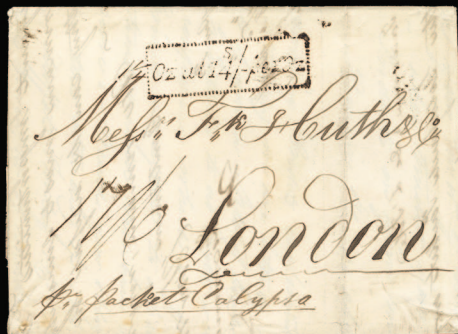 Oz at 5/- per Oz
Messrs Fk Huth & Co
London
pr packet Calypso